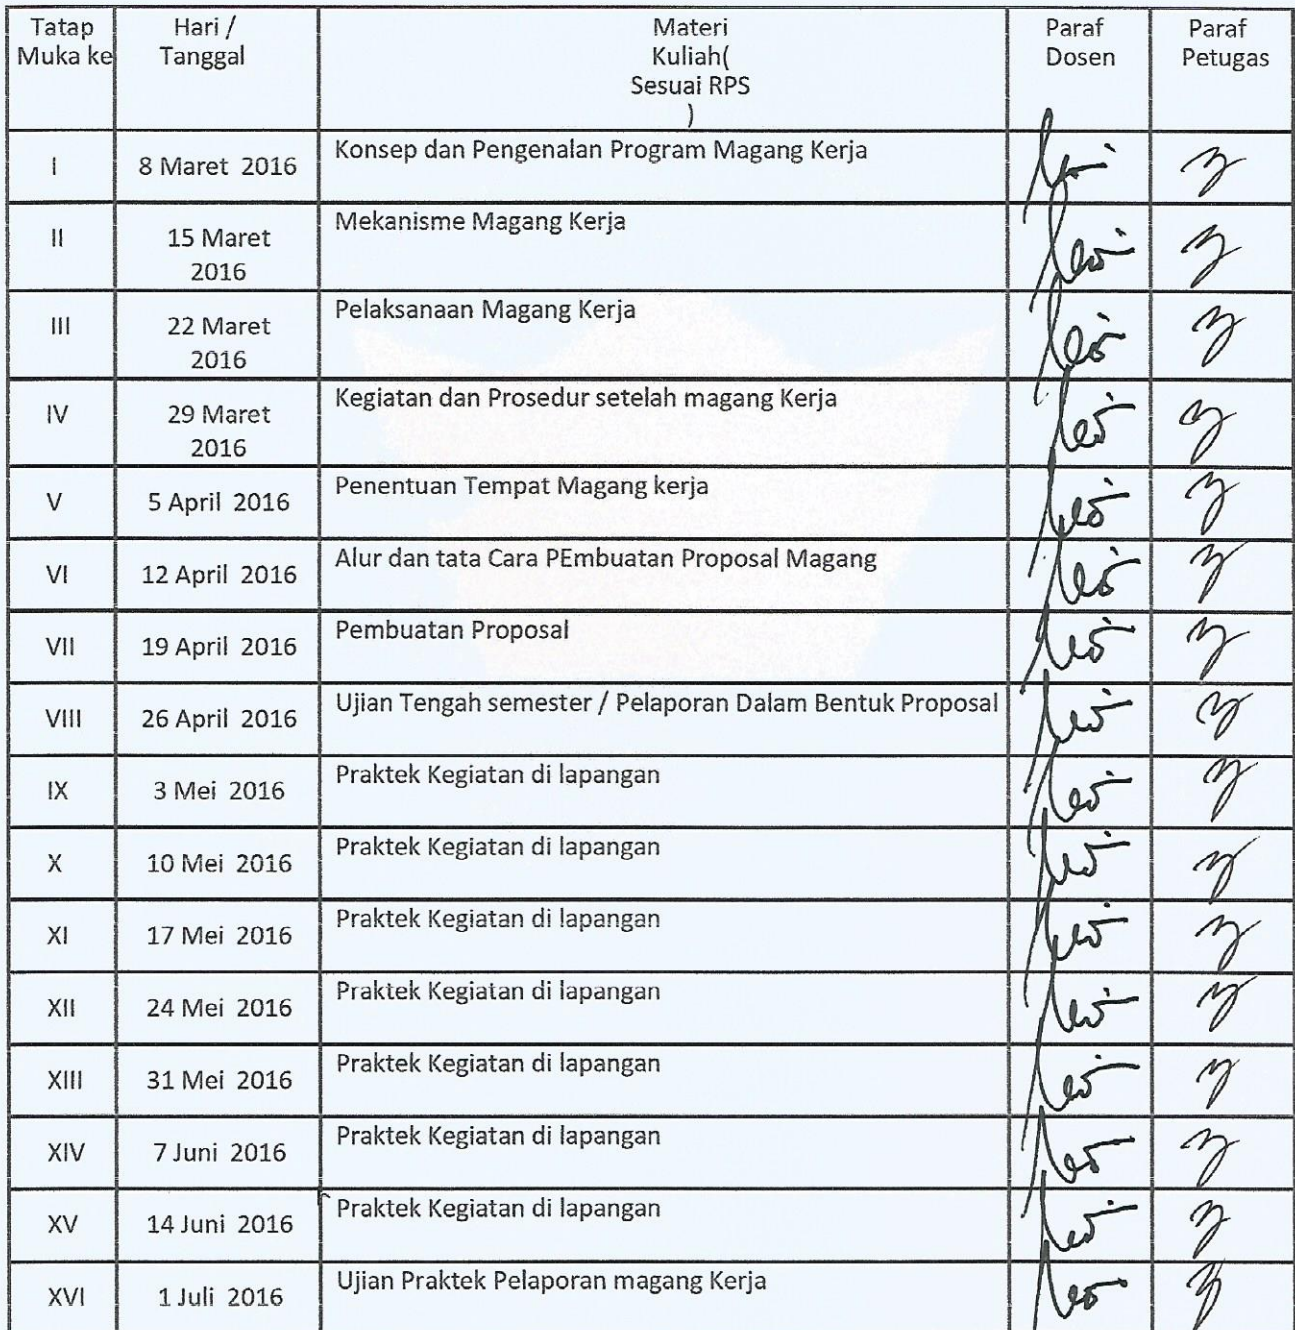 Tatap Muka ke Hari / Tanggal Materi Kuliah( Sesuai RPS ) Paraf Dosen Paraf Petugas
I 8 Maret 2016 Konsep dan Pengenalan Program Magang Kerja
II 15 Maret 2016 Mekanisme Magang Kerja
III 22 Maret 2016 Pelaksanaan Magang Kerja
IV 29 Maret 2016 Kegiatan dan Prosedur setelah magang Kerja
V 5 April 2016 Penentuan Tempat Magang kerja
VI 12 April 2016 Alur dan tata Cara PEmbuatan Proposal Magang
VII 19 April 2016 Pembuatan Proposal
VIII 26 April 2016 Ujian Tengah semester / Pelaporan Dalam Bentuk Proposal
IX 3 Mei 2016 Praktek Kegiatan di lapangan
X 10 Mei 2016 Praktek Kegiatan di lapangan
XI 17 Mei 2016 Praktek Kegiatan di lapangan
XII 24 Mei 2016 Praktek Kegiatan di lapangan
XIII 31 Mei 2016 Praktek Kegiatan di lapangan
XIV 7 Juni 2016 Praktek Kegiatan di lapangan
XV 14 Juni 2016 Praktek Kegiatan di lapangan
XVI 1 Juli 2016 Ujian Praktek Pelaporan magang Kerja